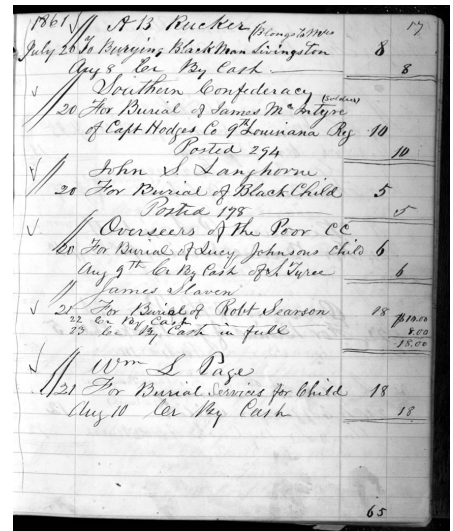 1861 A B Rucker (Belongs to Mrs 17
July 20 To Burying Black Man Livingston 8
Aug 8 Cr By Cash 8
Southern Confederacy (Soldier)
20 For Burial of James McIntyre
of Capt Hodges Co 9th Louiniana Reg 10
Posted 294 10
John S Langhorne
20 For Burial of Black Child 5
Posted 178 5
Overseers of the Poor CC
20 For Burial of Lucy Johnsons Child 6
Aug 9th Cr By Cash of Tyree 6
James Slaven
21 For Burial of Robt Searson 18
22 Cr By Cash $10.00
23 Cr By Cash in full 8.00
18.00
Wm S Page
21 For Burial Services for Child 18
Aug 10 Cr By Cash 18
65